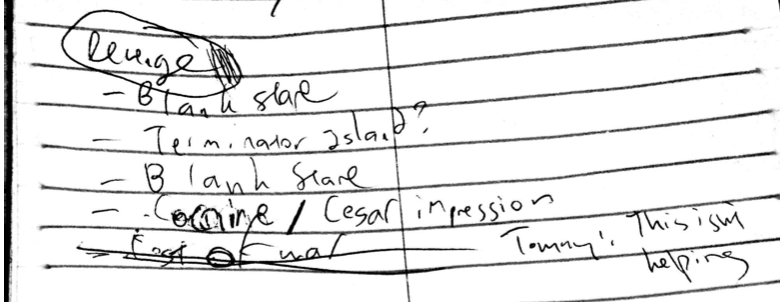 Revenge
- Blank stare
- Terminator Island?
- Blank Stare
- Cocaine / Cesar impression
- East of
Tommy: This isn't
helping